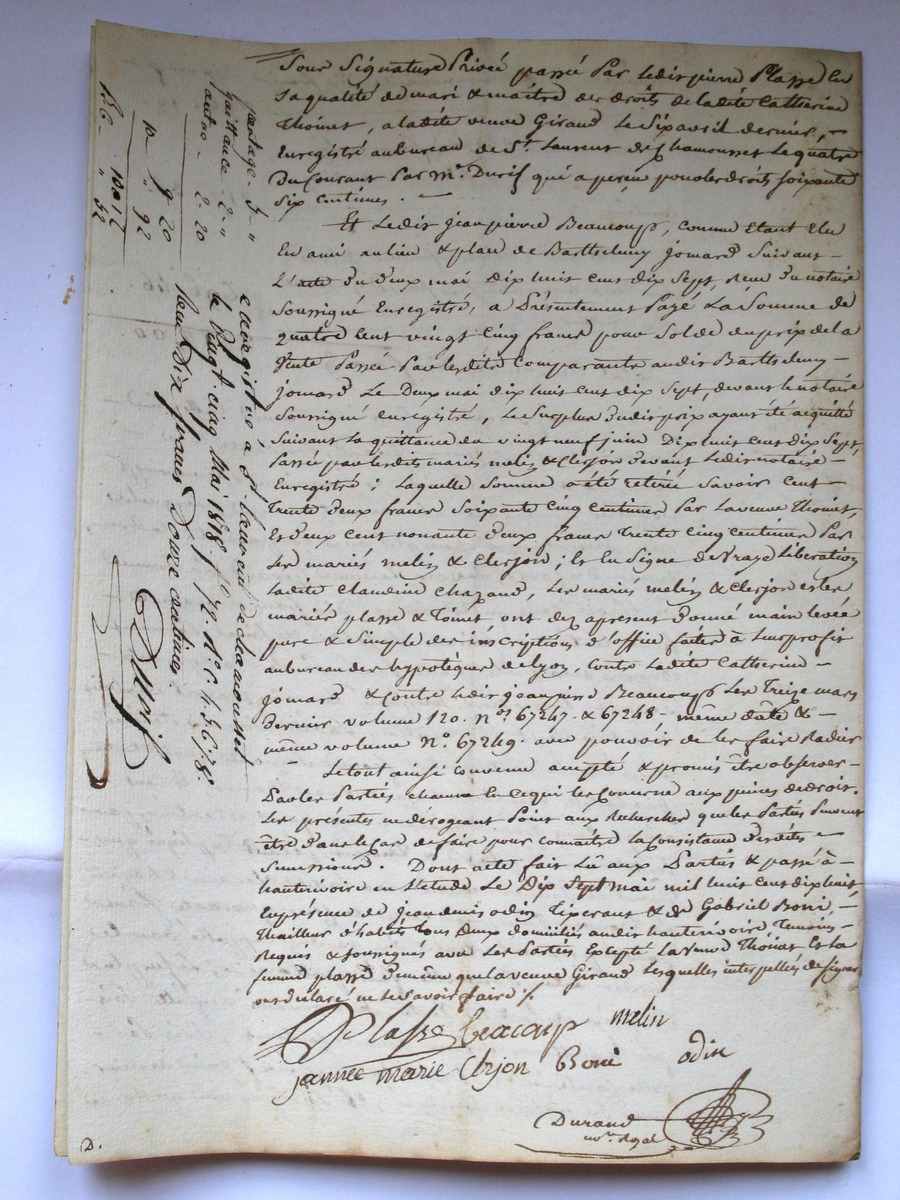 Sous Signature Privée passée Par ledit pierre Plasse En
sa qualité de mari & maitre des droits de ladite Catherine
Thoinet, a ladite veuve Giraud le Six avril dernier,
Enregistré au bureau de St. Laurent de Chamousset le quatre
Du Courant Par Mr. Durif qui a perçu pour les droits soixante
six centimes.
Et Ledit jean pierre Beaucoup, comme Etant Elu
En ami au lieu & place de Barthelemy jomard Suivant
L'acte du deux mai dix huit cent dix Sept, Reçu du notaire
Soussigné Enregistré, a Présentement Payé La Somme de
quatre Cent vingt Cinq francs pour Solde du prix de la
Vente Passée Par lesdits Comparants audit Barthelemy
jomard Le Deux mai dix huit cent dix Sept, devant le notaire
Soussigné enregistré, le Surplus dudit prix ayant été acquitté
Suivant la quittance du vingt neuf juin Dix huit cent dix Sept,
Passée par lesdits mariés melin & Clerjon devant ledit notaire
Enregistré; laquelle Somme a été retirée Savoir Cent
trente deux francs soixante Cinq Centimes par La veuve Thoinet,
Et deux Cent nonante deux francs trente Cinq Centimes Par
les mariés melin & Clerjon; Et En Signe de Vraye Libération
ladite Claudine Chazaud, les mariés melin & Clerjon et les
mariés plasse & Toinet, ont dez apresent donné main levée
pure & Simple des inscriptions d'office faites à leur profit
au bureau des hypotèques de lyon, contre ladite Catherine
jomard & Contre ledit jean pierre Beaucoup Les Treize mars
Dernier volume 120. nos. 67247. & 67248, même date &
même volume no. 67249. avec pouvoir de les faire Radier
Le tout ainsi convenu accepté & promis être observer
Par les Parties chacune En ce qui les Concerne aux peines de droit.
Les présentes ne dérogeant Point aux Recherches que les Parties Peuvent
être dans le Cas de faire pour connaitre la Consistance desdites
Successions. Dont acte fait lû aux Parties & passé à
hauterivoire en l'étude Le Dix Sept mai mil huit cent dix huit
En présence de jean denis odin Tixerant & de Gabriel Boni,
Thailleur d'habits tous deux domiciliés audit hauterivoire, Temoins
Requis & soussignés avec les Parties Excepté la veuve Thoinet Et la
femme plasse de même que la veuve Giraud lesquelles interpellées de Signer
ont déclaré ne le Savoir faire
Plasse Beacoup melin
jannee marie Clerjon Boni odin
Durand
not. Royal
D.
Enregistré à St. laurent de chamousset
le Vingt cinq Mai 1818 fo. 72. Ro. C. 4. 5. 6. 7. 8.
Reçu Dix francs Douze centimes.
Durif
partage - 5 "
quittance - 2 "
autre - 2. 20
9 20
10 " 92
10. 12